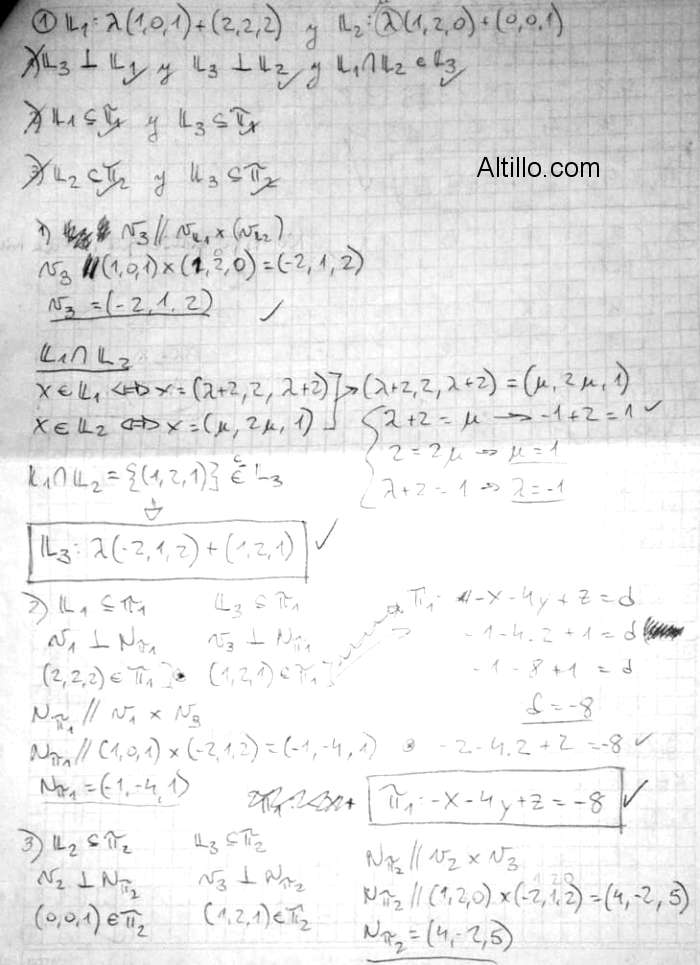 ① 𝕃₁: λ(1,0,1)+(2,2,2) y 𝕃₂: λ(1,2,0)+(0,0,1)
1) 𝕃₃ ⊥ 𝕃₁ y 𝕃₃ ⊥ 𝕃₂ y 𝕃₁∩𝕃₂ ∈ 𝕃₃
2) 𝕃₁ ⊆ π₁ y 𝕃₃ ⊆ π₁
3) 𝕃₂ ⊆ π₂ y 𝕃₃ ⊆ π₂
Altillo.com
1) v₃ // v𝕃₁ × (v𝕃₂)
v₃ // (1,0,1) × (1,2,0) = (-2,1,2)
v₃ = (-2,1,2) ✓
𝕃₁∩𝕃₂
X∈𝕃₁ ⇔ X = (λ+2,2,λ+2)
X∈𝕃₂ ⇔ X = (μ,2μ,1)
→ (λ+2,2,λ+2) = (μ,2μ,1)
λ+2 = μ → -1+2 = 1 ✓
2 = 2μ → μ = 1
λ+2 = 1 → λ = -1
𝕃₁∩𝕃₂ = {(1,2,1)} ∈ 𝕃₃
𝕃₃: λ(-2,1,2)+(1,2,1) ✓
2) 𝕃₁ ⊆ π₁ 𝕃₃ ⊆ π₁
v₁ ⊥ Nπ₁ v₃ ⊥ Nπ₁
(2,2,2) ∈ π₁ (1,2,1) ∈ π₁
Nπ₁ // v₁ × v₃
Nπ₁ // (1,0,1) × (-2,1,2) = (-1,-4,1)
Nπ₁ = (-1,-4,1)
π₁: -x-4y+z = d
-1-4.2+1 = d
-1-8+1 = d
d = -8
-2-4.2+2 = -8 ✓
π₁: -x-4y+z = -8 ✓
3) 𝕃₂ ⊆ π₂ 𝕃₃ ⊆ π₂
v₂ ⊥ Nπ₂ v₃ ⊥ Nπ₂
(0,0,1) ∈ π₂ (1,2,1) ∈ π₂
Nπ₂ // v₂ × v₃
Nπ₂ // (1,2,0) × (-2,1,2) = (4,-2,5)
Nπ₂ = (4,-2,5)